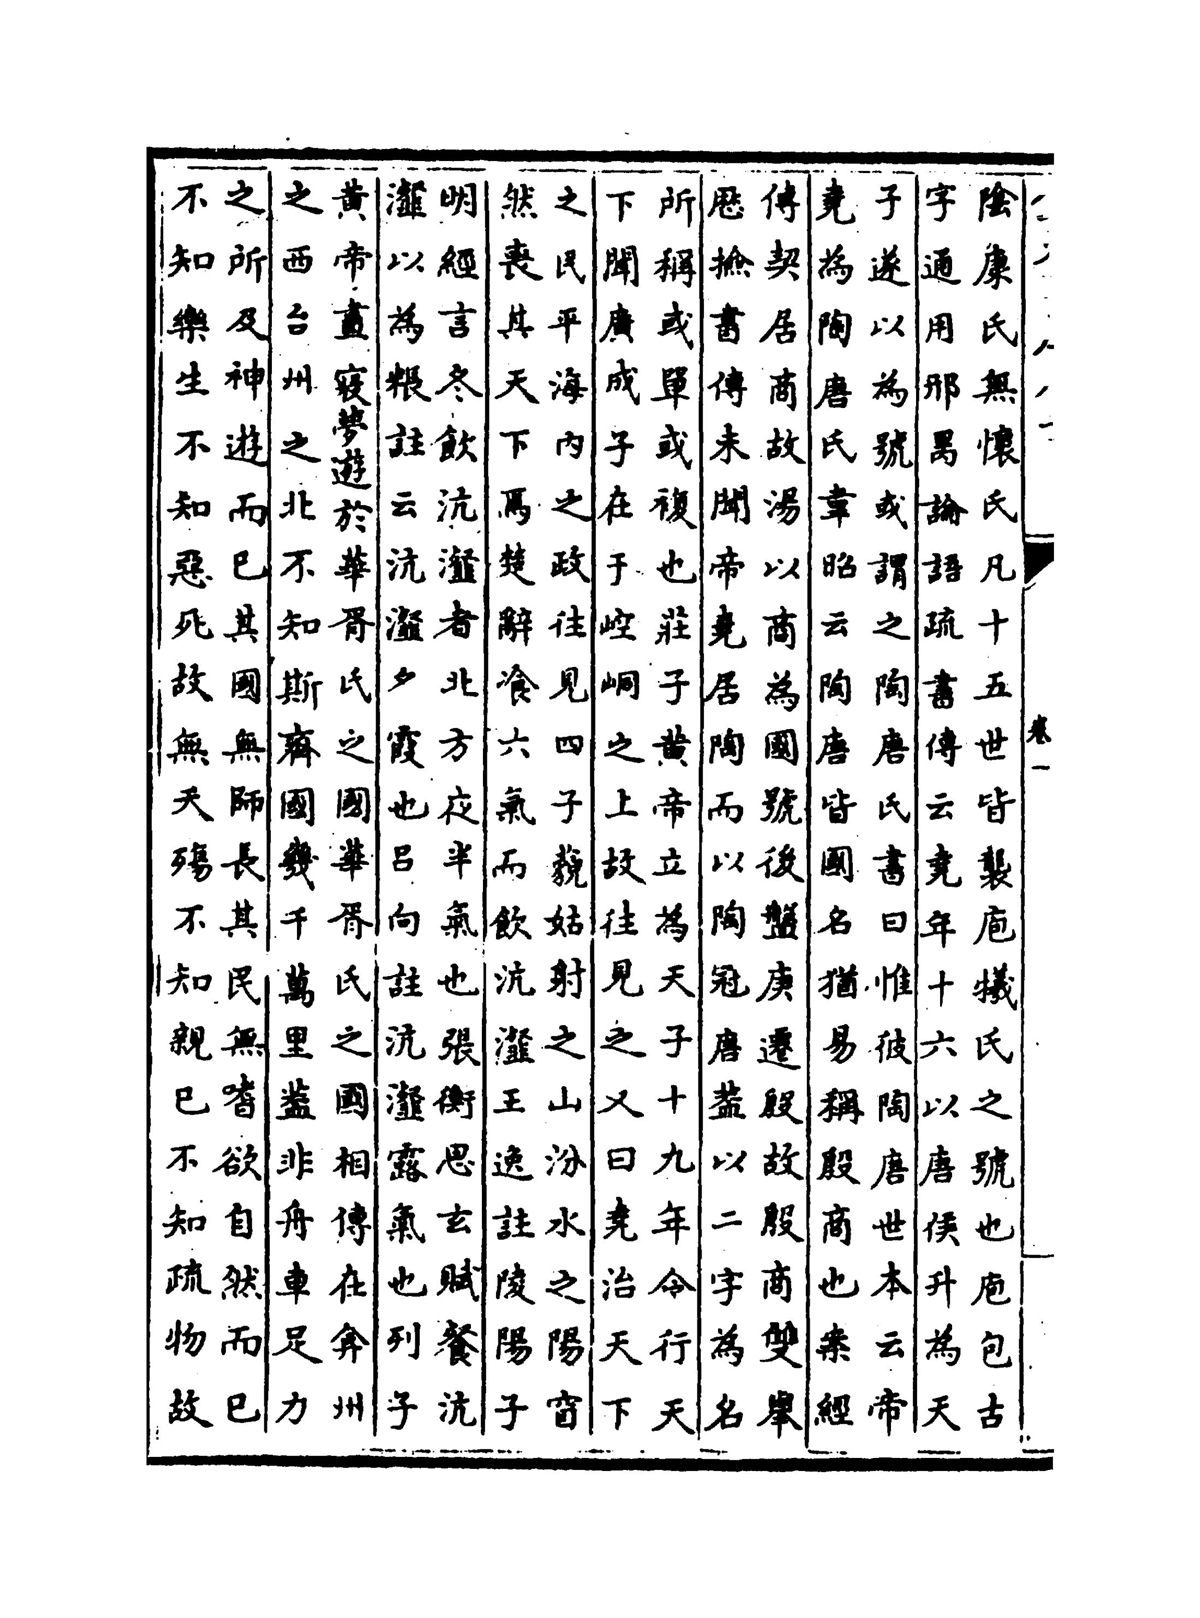 卷一
陰康氏無懷氏凡十五世皆襲庖犧氏之號也庖包古
字通用邢昺論語疏書傳云堯年十六以唐侯升為天
子遂以為號或謂之陶唐氏書曰惟彼陶唐世本云帝
堯為陶唐氏韋昭云陶唐皆國名猶易稱殷商也案經
傳契居商故湯以商為國號後盤庚遷殷故殷商雙舉
歷撿書傳未聞帝堯居陶而以陶冠唐蓋以二字為名
所稱或單或複也莊子黃帝立為天子十九年令行天
下聞廣成子在于崆峒之上故往見之又曰堯治天下
之民平海內之政往見四子藐姑射之山汾水之陽窅
然喪其天下焉楚辭飡六氣而飲沆瀣王逸註陵陽子
明經言冬飲沆瀣者北方夜半氣也張衡思玄賦餐沆
瀣以為粻註云沆瀣夕霞也呂向註沆瀣露氣也列子
黃帝晝寢夢遊於華胥氏之國華胥氏之國相傳在弇州
之西台州之北不知斯齊國幾千萬里蓋非舟車足力
之所及神遊而已其國無師長其民無嗜欲自然而已
不知樂生不知惡死故無夭殤不知親己不知疏物故